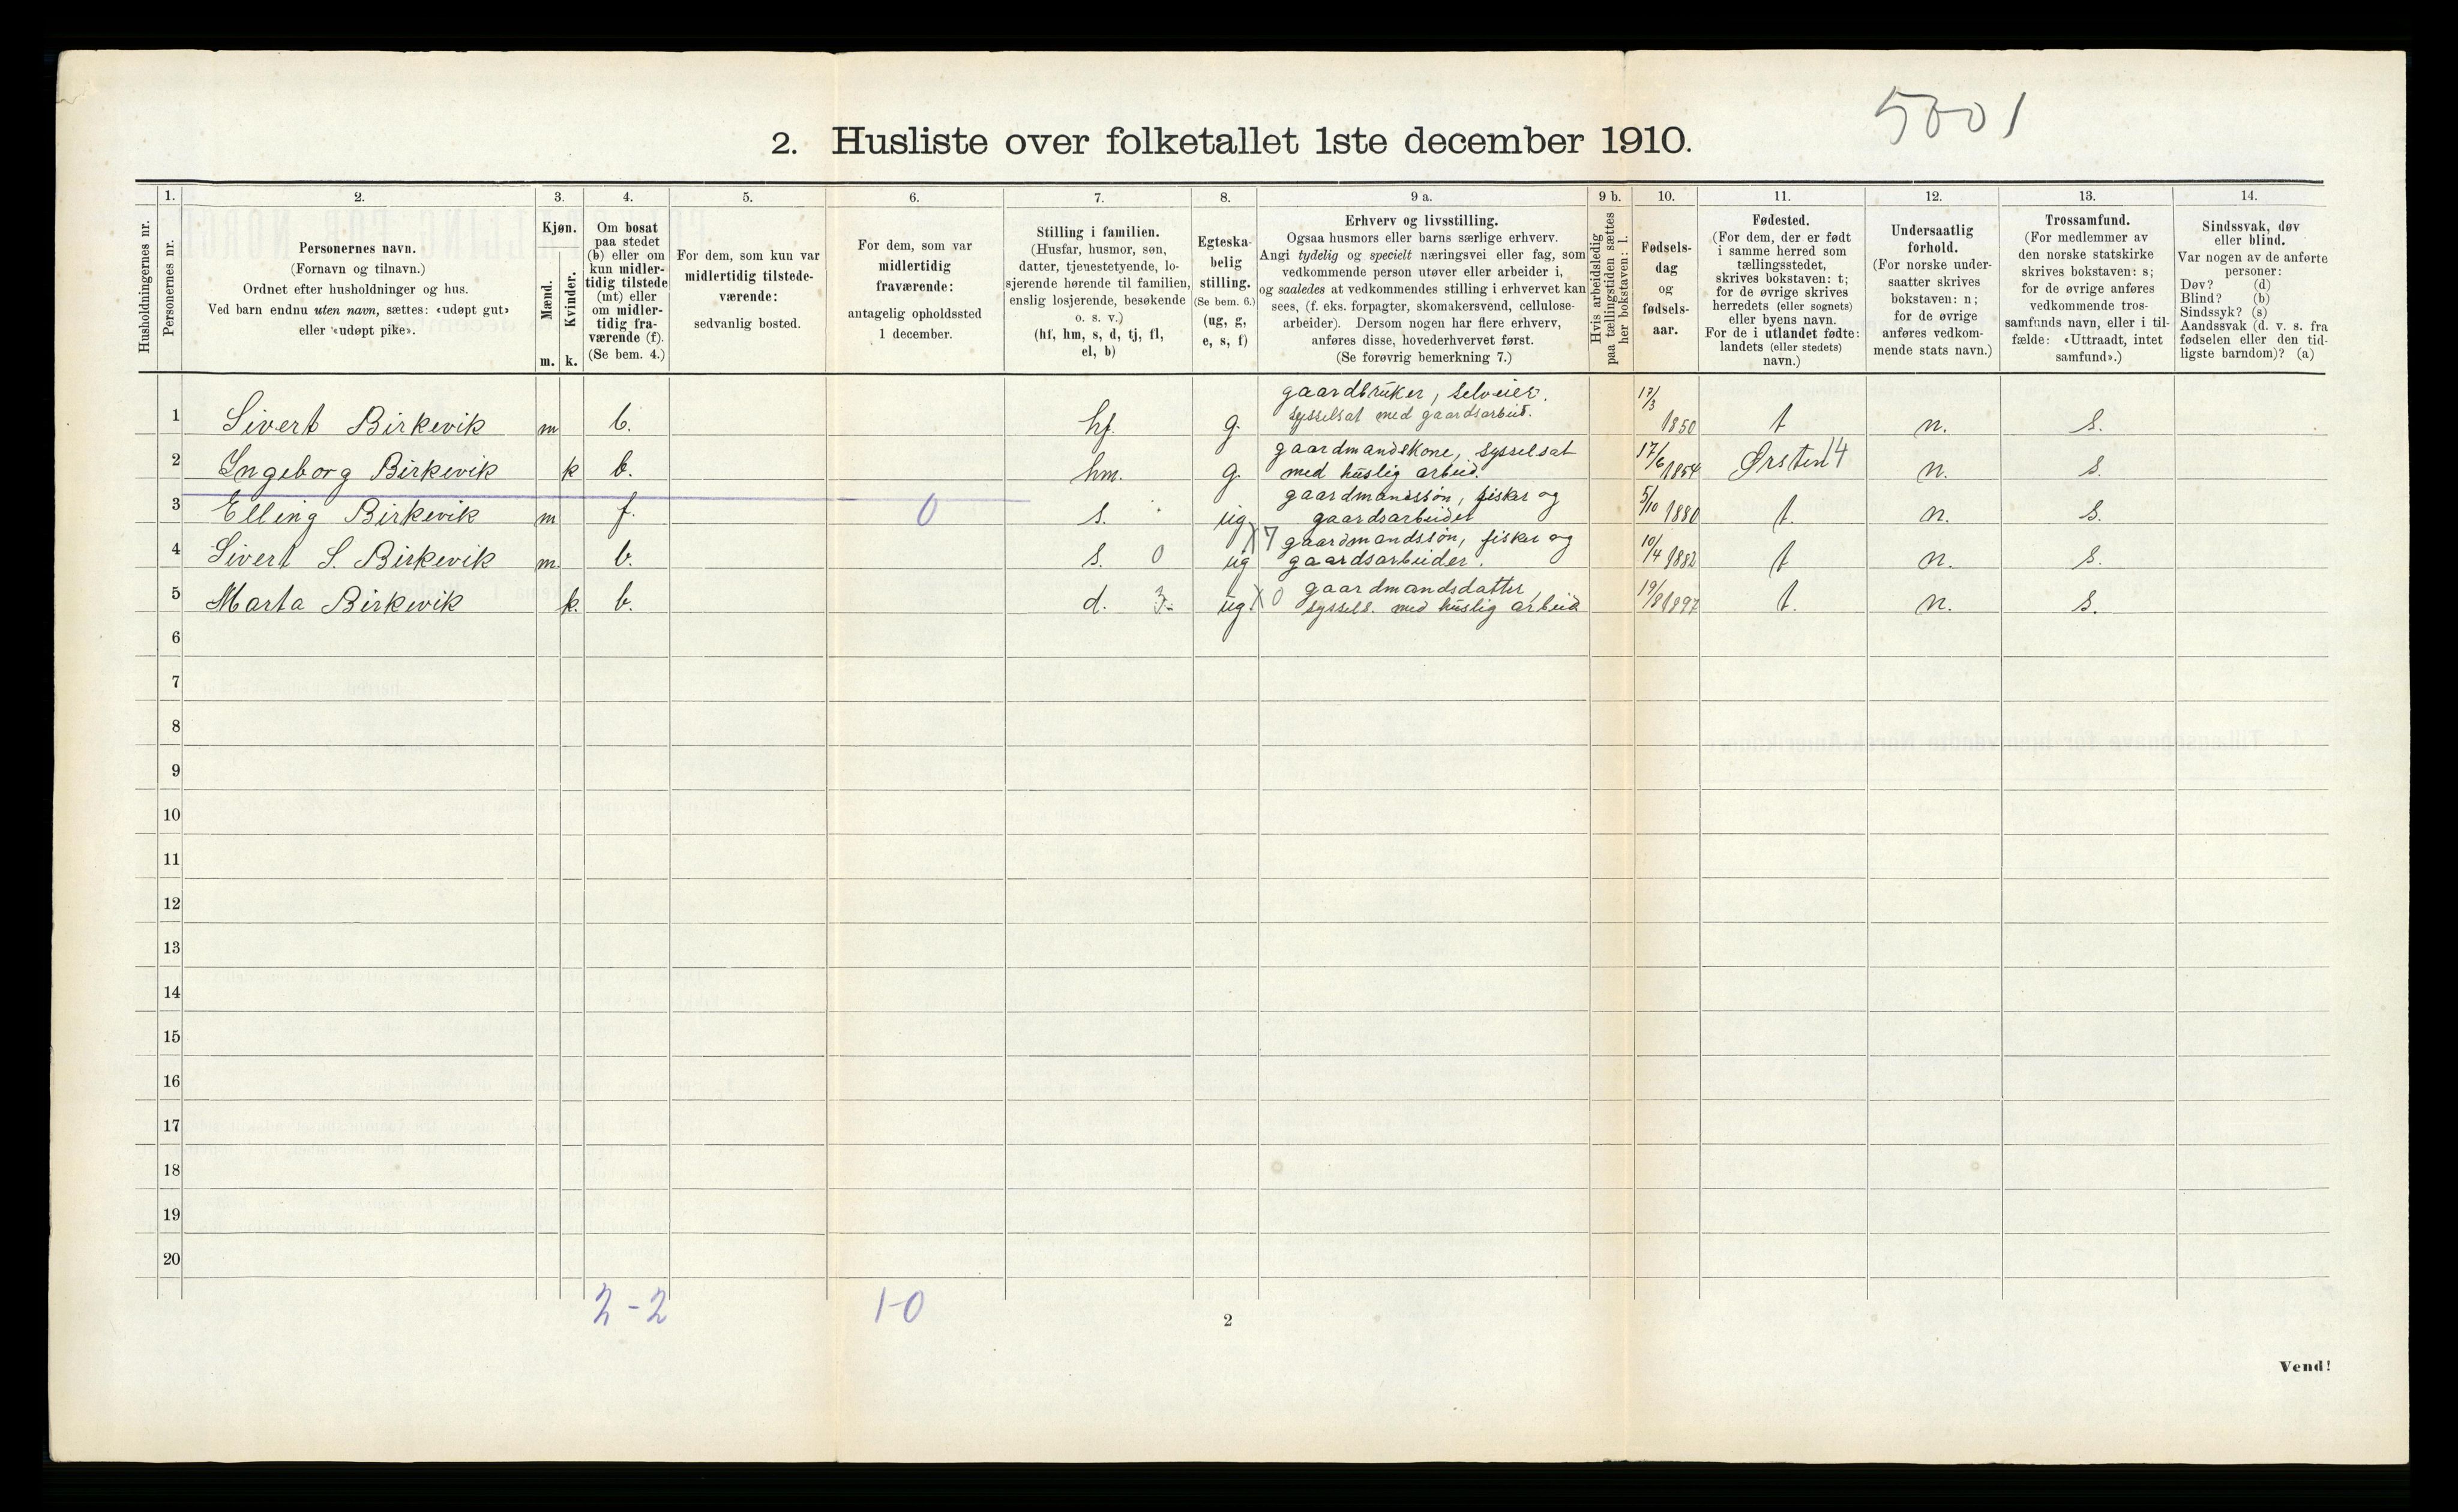 5001
2. Husliste over folketallet 1ste december 1910.
1. 2. 3. 4. 5. 6. 7. 8. 9 a. 9 b. 10. 11. 12. 13. 14.
Husholdningernes nr.
Personernes nr.
Personernes navn.
(Fornavn og tilnavn.)
Ordnet efter husholdninger og hus.
Ved barn endnu uten navn, sættes: «udøpt gut»
eller «udøpt pike».
Kjøn.
Mænd.
Kvinder.
m. k.
Om bosat
paa stedet
(b) eller om
kun midler-
tidig tilstede
(mt) eller
om midler-
tidig fra-
værende (f).
(Se bem. 4.)
For dem, som kun var
midlertidig tilstede-
værende:
sedvanlig bosted.
For dem, som var
midlertidig
fraværende:
antagelig opholdssted
1 december.
Stilling i familien.
(Husfar, husmor, søn,
datter, tjenestetyende, lo-
sjerende hørende til familien,
enslig losjerende, besøkende
o. s. v.)
(hf, hm, s, d, tj, fl,
el, b)
Egteska-
belig
stilling.
(Se bem. 6.)
(ug, g,
e, s, f)
Erhverv og livsstilling.
Ogsaa husmors eller barns særlige erhverv.
Angi tydelig og specielt næringsvei eller fag, som
vedkommende person utøver eller arbeider i,
og saaledes at vedkommendes stilling i erhvervet kan
sees, (f. eks. forpagter, skomakersvend, cellulose-
arbeider). Dersom nogen har flere erhverv,
anføres disse, hovederhvervet først.
(Se forøvrig bemerkning 7.)
Hvis arbeidsledig
paa tællingstiden sættes
her bokstaven: l.
Fødsels-
dag
og
fødsels-
aar.
Fødested.
(For dem, der er født
i samme herred som
tællingsstedet,
skrives bokstaven: t;
for de øvrige skrives
herredets (eller sognets)
eller byens navn.
For de i utlandet fødte:
landets (eller stedets)
navn.)
Undersaatlig
forhold.
(For norske under-
saatter skrives
bokstaven: n;
for de øvrige
anføres vedkom-
mende stats navn.)
Trossamfund.
(For medlemmer av
den norske statskirke
skrives bokstaven: s;
for de øvrige anføres
vedkommende tros-
samfunds navn, eller i til-
fælde: «Uttraadt, intet
samfund».)
Sindssvak, døv
eller blind.
Var nogen av de anførte
personer:
Døv? (d)
Blind? (b)
Sindssyk? (s)
Aandssvak (d. v. s. fra
fødselen eller den tid-
ligste barndom)? (a)
gaardbruker, selveier.
1 Sivert Birkevik m b. hf. g. sysselsat med gaardsarbeid. 17/3 1850 t n. s.
gaardmandskone, sysselsat
2 Ingeborg Birkevik k b. hm. g. med huslig arbeid. 17/6 1854 Ørsten 14 n. s.
gaardmandssøn, fisker og
3 Elling Birkevik m f. 0 s. ug gaardsarbeider 5/10 1880 t. n. s.
7 gaardmandssøn, fisker og
4 Sivert S. Birkevik m. b. s. 0 ug gaardsarbeider. 10/4 1882 t n. s.
0 gaardmandsdatter,
5 Marta Birkevik k. b. d. 3. ug. syssels. med huslig arbeid 19/8 1897 t. n. s.
6
7
8
9
10
11
12
13
14
15
16
17
18
19
20
2-2 1-0
2
Vend!